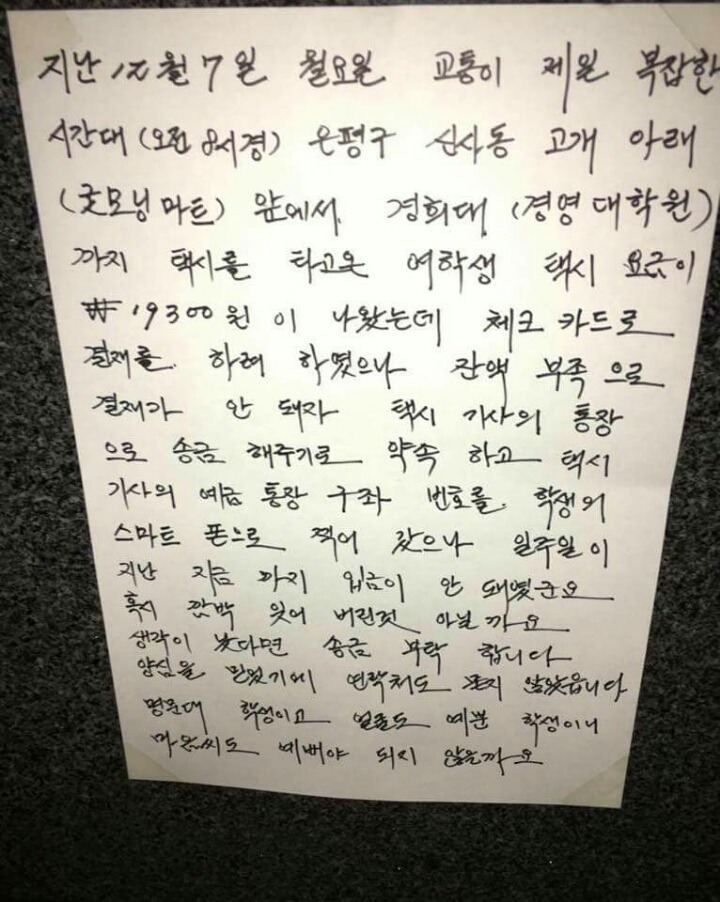 지난 12월 7일 월요일 교통이 제일 복잡한
시간대 (오전 8시경) 은평구 신사동 고개 아래
(굿모닝마트) 앞에서 경희대 (경영대학원)
까지 택시를 타고온 여학생 택시 요금이
₩19300원이 나왔는데 체크카드로
결재를 하려 하였으나 잔액 부족으로
결재가 안 돼자 택시 기사의 통장
으로 송금 해주기로 약속 하고 택시
기사의 예금통장 구좌 번호를 학생의
스마트 폰으로 찍어 갔으나 일주일이
지난 지금 까지 입금이 안 돼였군요
혹시 깜박 잊어 버린것 아닐까요
생각이 났다면 송금 부탁 합니다
양심을 믿었기에 연락처도 묻지 않았읍니다
명문대 학생이고 얼굴도 예쁜 학생이니
마음씨도 예뻐야 되지 않을까요